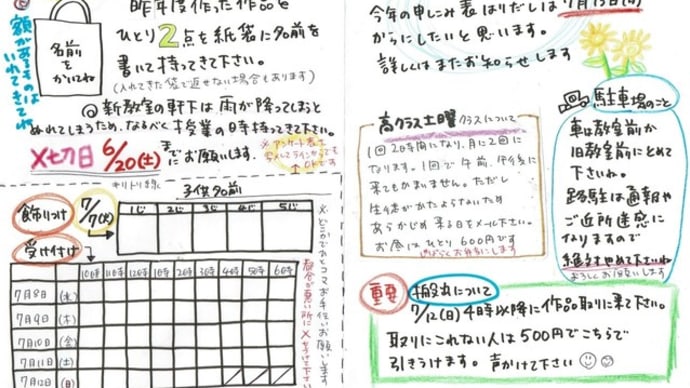 昨年度作った作品を
ひとり2点を紙袋に名前を
書いて持ってきて下さい。
(入れてきた袋で返せない場合もあります)
額があるものは
いれてきてね
名前を
かいてね
◎新教室の軒下は雨が降ってしまうと
ぬれてしまうため、なるべく授業の日時持ってきて下さい。
〆切日 6/20(土)までにお願いします。
キリトリ線
子供名前
飾りつけ 7/7(火)
1じ 2じ 3じ 4じ 5じ
受け付け
10時 11時 12時 1時 2時 3時 4時 5時 6時
7月8日 (水)
7月9日 (木)
7月10日 (金)
7月11日 (土)
7月12日 (日)
都合が悪い所に×をつけて下さい
今年の申しこみ表はりだしは7月13日(月)
からにしたいと思います。
詳しくはまたお知らせします
高クラス土曜クラスについて
1回2時間になり、月に2回に
なります。1回で午前、午後に
来てもかまいません。ただし
生徒がかたよらないため
あらかじめ来る日をメール下さい。
お金はひとり600円です
駐車場のこと
車は教室前か
旧教室前にとめて
下さいね。
路駐は通報や
ご近所迷惑に
なりますので
絶対やめて下さいね
よろしくお願いします
重要 搬出について
7/12(日)4時以降に作品取りに来て下さい。
取りにこれない人は500円でこちらで
引きうけます。声かけて下さい